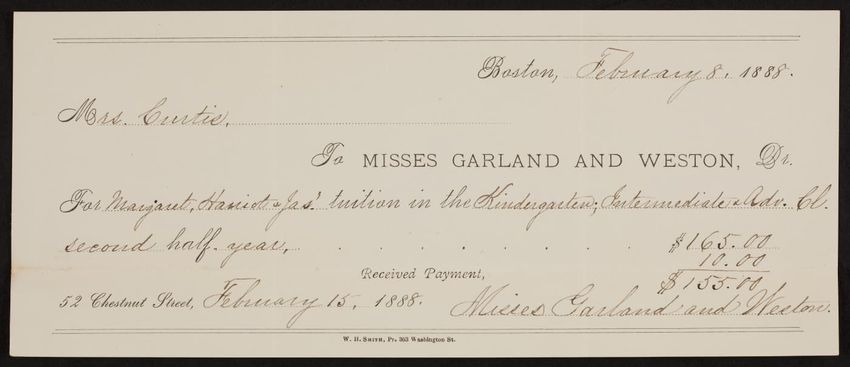 Boston, February 8, 1888.
Mrs. Curtis,
To MISSES GARLAND AND WESTON, Dr.
For Margaret, Harriot & Jas' tuition in the Kindergarten, Intermediate & Adv. Cl.
second half-year, . . . . . . . $165.00
10.00
Received Payment, $155.00
52 Chestnut Street, February 15, 1888. Misses Garland and Weston.
W. H. SMITH, Pr. 363 Washington St.